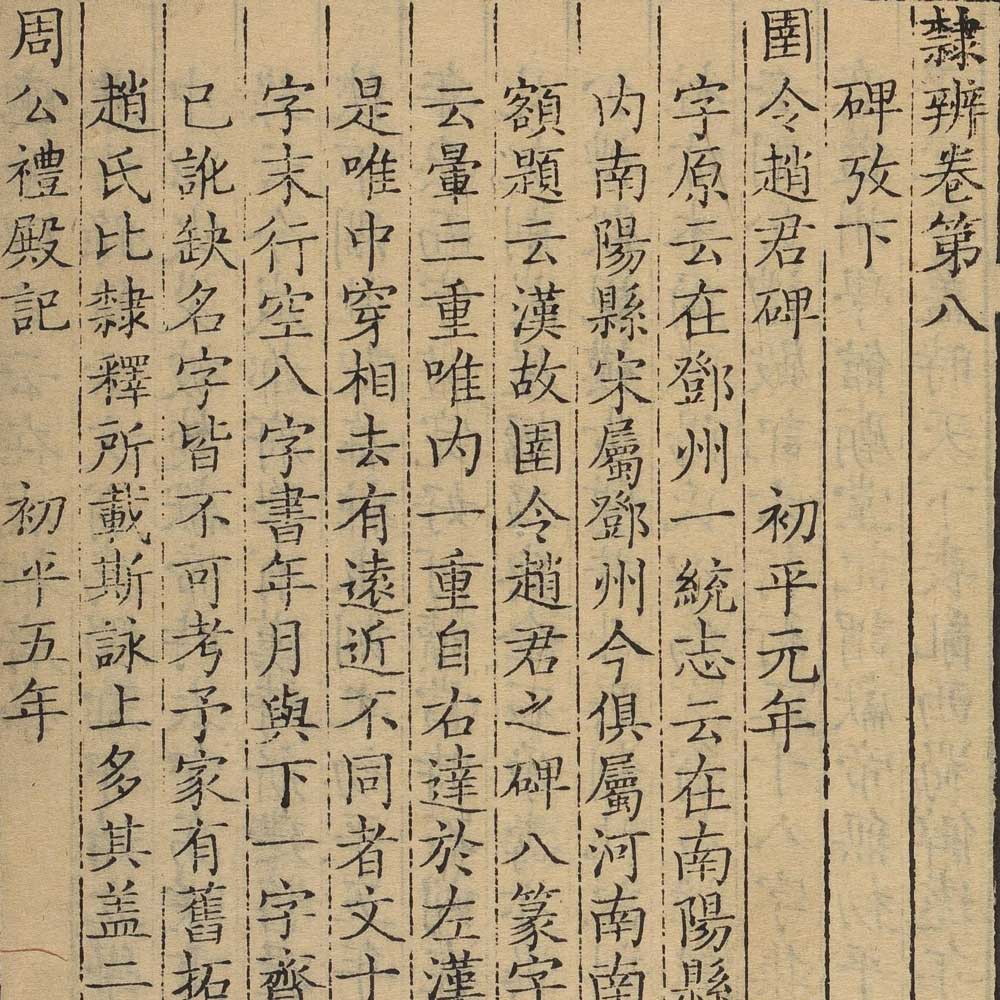 隸辨卷第八
碑攷下
圉令趙君碑 初平元年
字原云在鄧州一統志云在南陽縣
内南陽縣宋屬鄧州今俱屬河南南
額題云漢故圉令趙君之碑八篆字
云暈三重唯内一重自右達於左漢
是唯中穿相去有遠近不同者文十
字末行空八字書年月與下一字齊
已訛缺名字皆不可考予家有舊拓
趙氏比隸釋所載斯詠上多其盖二
周公禮殿記 初平五年